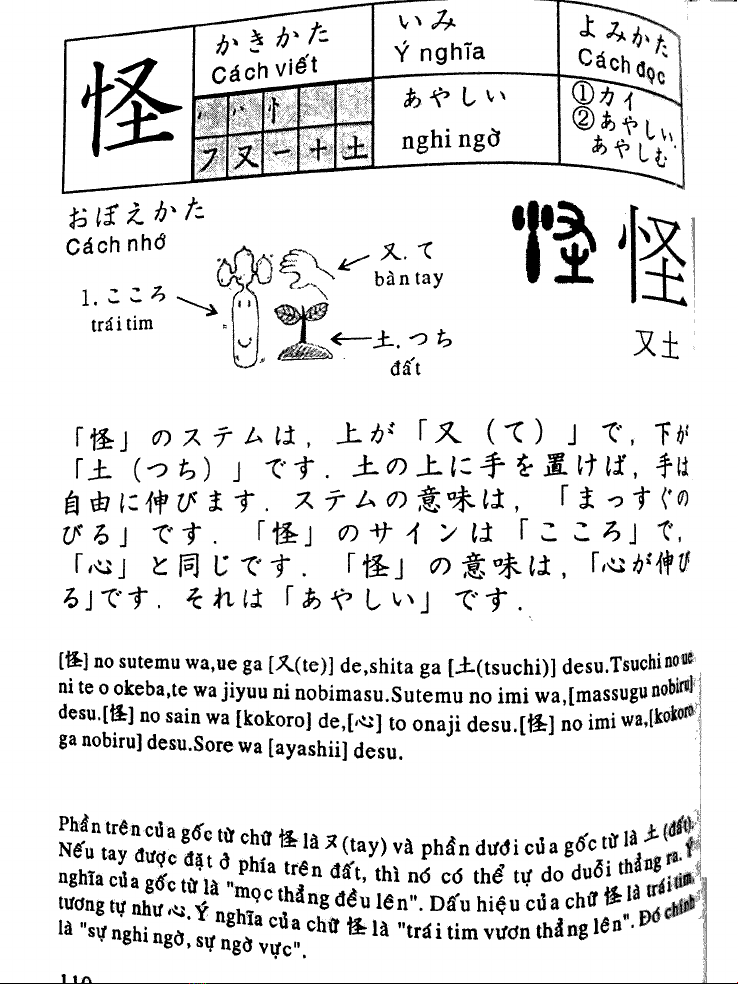 怪
かきかた
Cách viết
いみ
Ý nghĩa
よみかた
Cách đọc
フ 又 一 十 土
あやしい
nghi ngờ
①カイ
②あやしい、
あやしむ
おぼえかた
Cách nhớ
1.こころ
trái tim
又.て
bàn tay
土.つち
đất
怪 怪
又土
「怪」のステムは，上が「又（て）」で，下が
「土（つち）」です．土の上に手を置けば，手は
自由に伸びます．ステムの意味は，「まっすぐの
びる」です．「怪」のサインは「こころ」で，
「心」と同じです．「怪」の意味は，「心が伸び
る」です．それは「あやしい」です．
[怪] no sutemu wa,ue ga [又(te)] de,shita ga [土(tsuchi)] desu.Tsuchi no ue
ni te o okeba,te wa jiyuu ni nobimasu.Sutemu no imi wa,[massugu nobiru]
desu.[怪] no sain wa [kokoro] de,[心] to onaji desu.[怪] no imi wa,[kokoro
ga nobiru] desu.Sore wa [ayashii] desu.
Phần trên của gốc từ chữ 怪 là 又(tay) và phần dưới của gốc từ là 土 (đất).
Nếu tay được đặt ở phía trên đất, thì nó có thể tự do duỗi thẳng ra. Ý
nghĩa của gốc từ là "mọc thẳng đều lên". Dấu hiệu của chữ 怪 là trái tim,
tương tự như 心. Ý nghĩa của chữ 怪 là "trái tim vươn thẳng lên". Đó chính
là "sự nghi ngờ, sự ngờ vực".